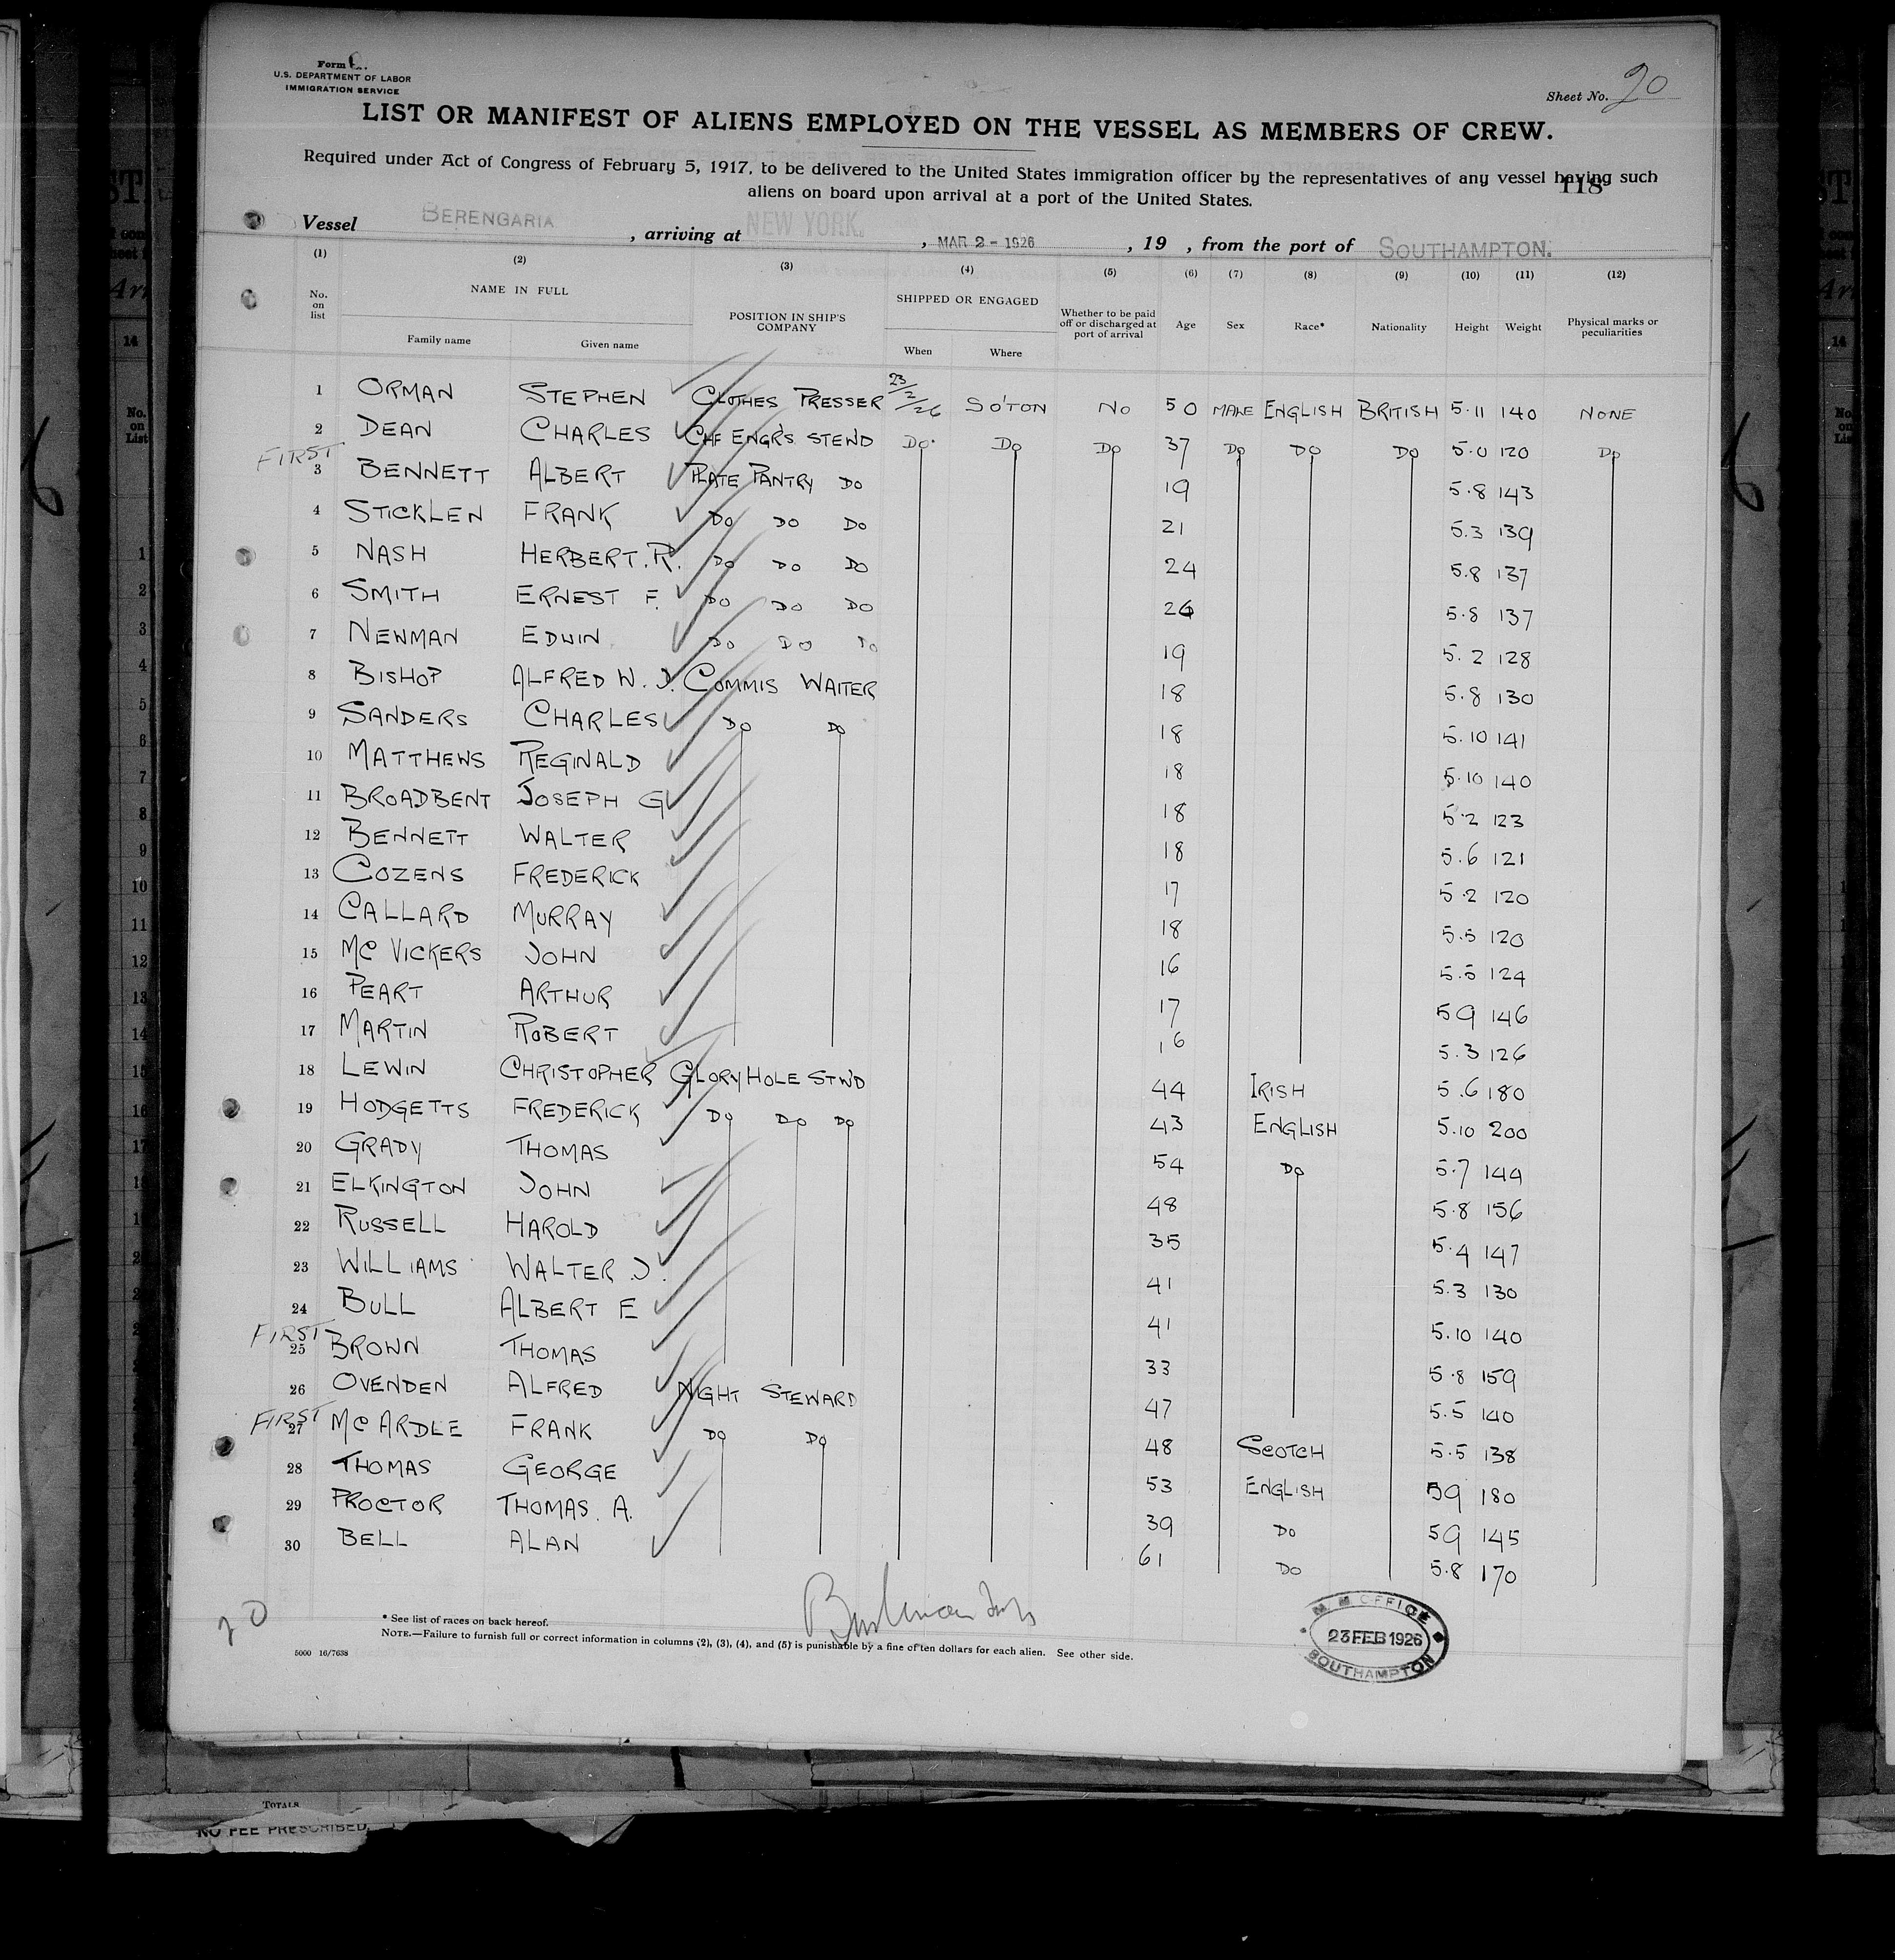 Form
U.S. DEPARTMENT OF LABOR
IMMIGRATION SERVICE
Sheet No. 20
LIST OR MANIFEST OF ALIENS EMPLOYED ON THE VESSEL AS MEMBERS OF CREW.
Required under Act of Congress of February 5, 1917, to be delivered to the United States immigration officer by the representatives of any vessel having such
aliens on board upon arrival at a port of the United States.
118
Vessel BERENGARIA, arriving at NEW YORK., MAR 2 - 1926, 19 , from the port of SOUTHAMPTON.
(1) (2) (3) (4) (5) (6) (7) (8) (9) (10) (11) (12)
No. on list NAME IN FULL POSITION IN SHIP'S COMPANY SHIPPED OR ENGAGED Whether to be paid off or discharged at port of arrival Age Sex Race* Nationality Height Weight Physical marks or peculiarities
Family name Given name When Where
1 ORMAN STEPHEN CLOTHES PRESSER 23/2/26 SO'TON NO 50 MALE ENGLISH BRITISH 5.11 140 NONE
2 DEAN CHARLES CHF ENGR'S STEWD DO. DO DO 37 DO DO DO 5.0 120 DO
FIRST
3 BENNETT ALBERT PLATE PANTRY DO 19 5.8 143
4 STICKLEN FRANK DO DO DO 21 5.3 139
5 NASH HERBERT.R. DO DO DO 24 5.8 137
6 SMITH ERNEST F. DO DO DO 26 5.8 137
7 NEWMAN EDWIN DO DO DO 19 5.2 128
8 BISHOP ALFRED W.J. COMMIS WAITER 18 5.8 130
9 SANDERS CHARLES DO DO 18 5.10 141
10 MATTHEWS REGINALD 18 5.10 140
11 BROADBENT JOSEPH G 18 5.2 123
12 BENNETT WALTER 18 5.6 121
13 COZENS FREDERICK 17 5.2 120
14 CALLARD MURRAY 18 5.5 120
15 MC VICKERS JOHN 16 5.5 124
16 PEART ARTHUR 17 5 9 146
17 MARTIN ROBERT 16 5.3 126
18 LEWIN CHRISTOPHER GLORY HOLE STWD 44 IRISH 5.6 180
19 HODGETTS FREDERICK DO DO DO 43 ENGLISH 5.10 200
20 GRADY THOMAS 54 DO 5.7 144
21 ELKINGTON JOHN 48 5.8 156
22 RUSSELL HAROLD 35 5.4 147
23 WILLIAMS WALTER J. 41 5.3 130
24 BULL ALBERT E 41 5.10 140
FIRST
25 BROWN THOMAS 33 5.8 159
26 OVENDEN ALFRED NIGHT STEWARD 47 5.5 140
FIRST
27 MC ARDLE FRANK DO DO 48 SCOTCH 5.5 138
28 THOMAS GEORGE 53 ENGLISH 5 9 180
29 PROCTOR THOMAS. A. 39 DO 5 9 145
30 BELL ALAN 61 DO 5.8 170
20
* See list of races on back hereof.
NOTE.—Failure to furnish full or correct information in columns (2), (3), (4), and (5) is punishable by a fine of ten dollars for each alien. See other side.
5000 16/7638
M. M. OFFICE
23 FEB 1926
SOUTHAMPTON
TOTALS
NO FEE PRESCRIBED.